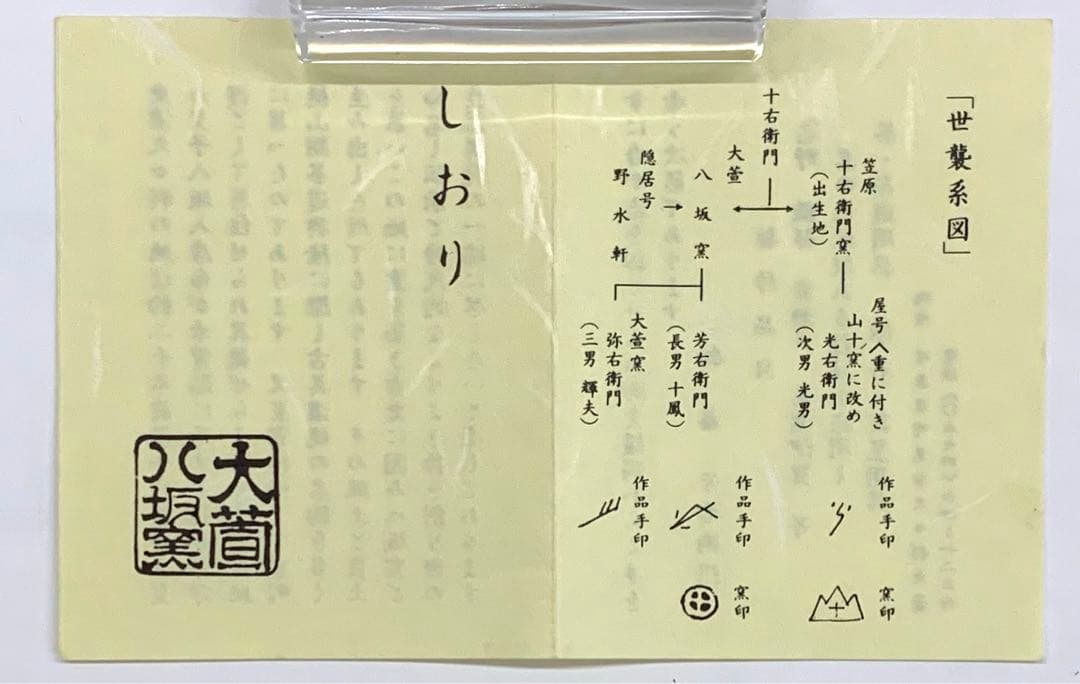 「世襲系図」
笠原
十右衛門窯
（出生地）
屋号八重に付き
山十窯に改め
光右衛門
（次男 光男）
作品手印
窯印
十右衛門
大萱
八坂窯
芳右衛門
（長男 十鳳）
作品手印
窯印
隠居号
野水軒
大萱窯
弥右衛門
（三男 輝夫）
作品手印
しおり
大萱
八坂窯